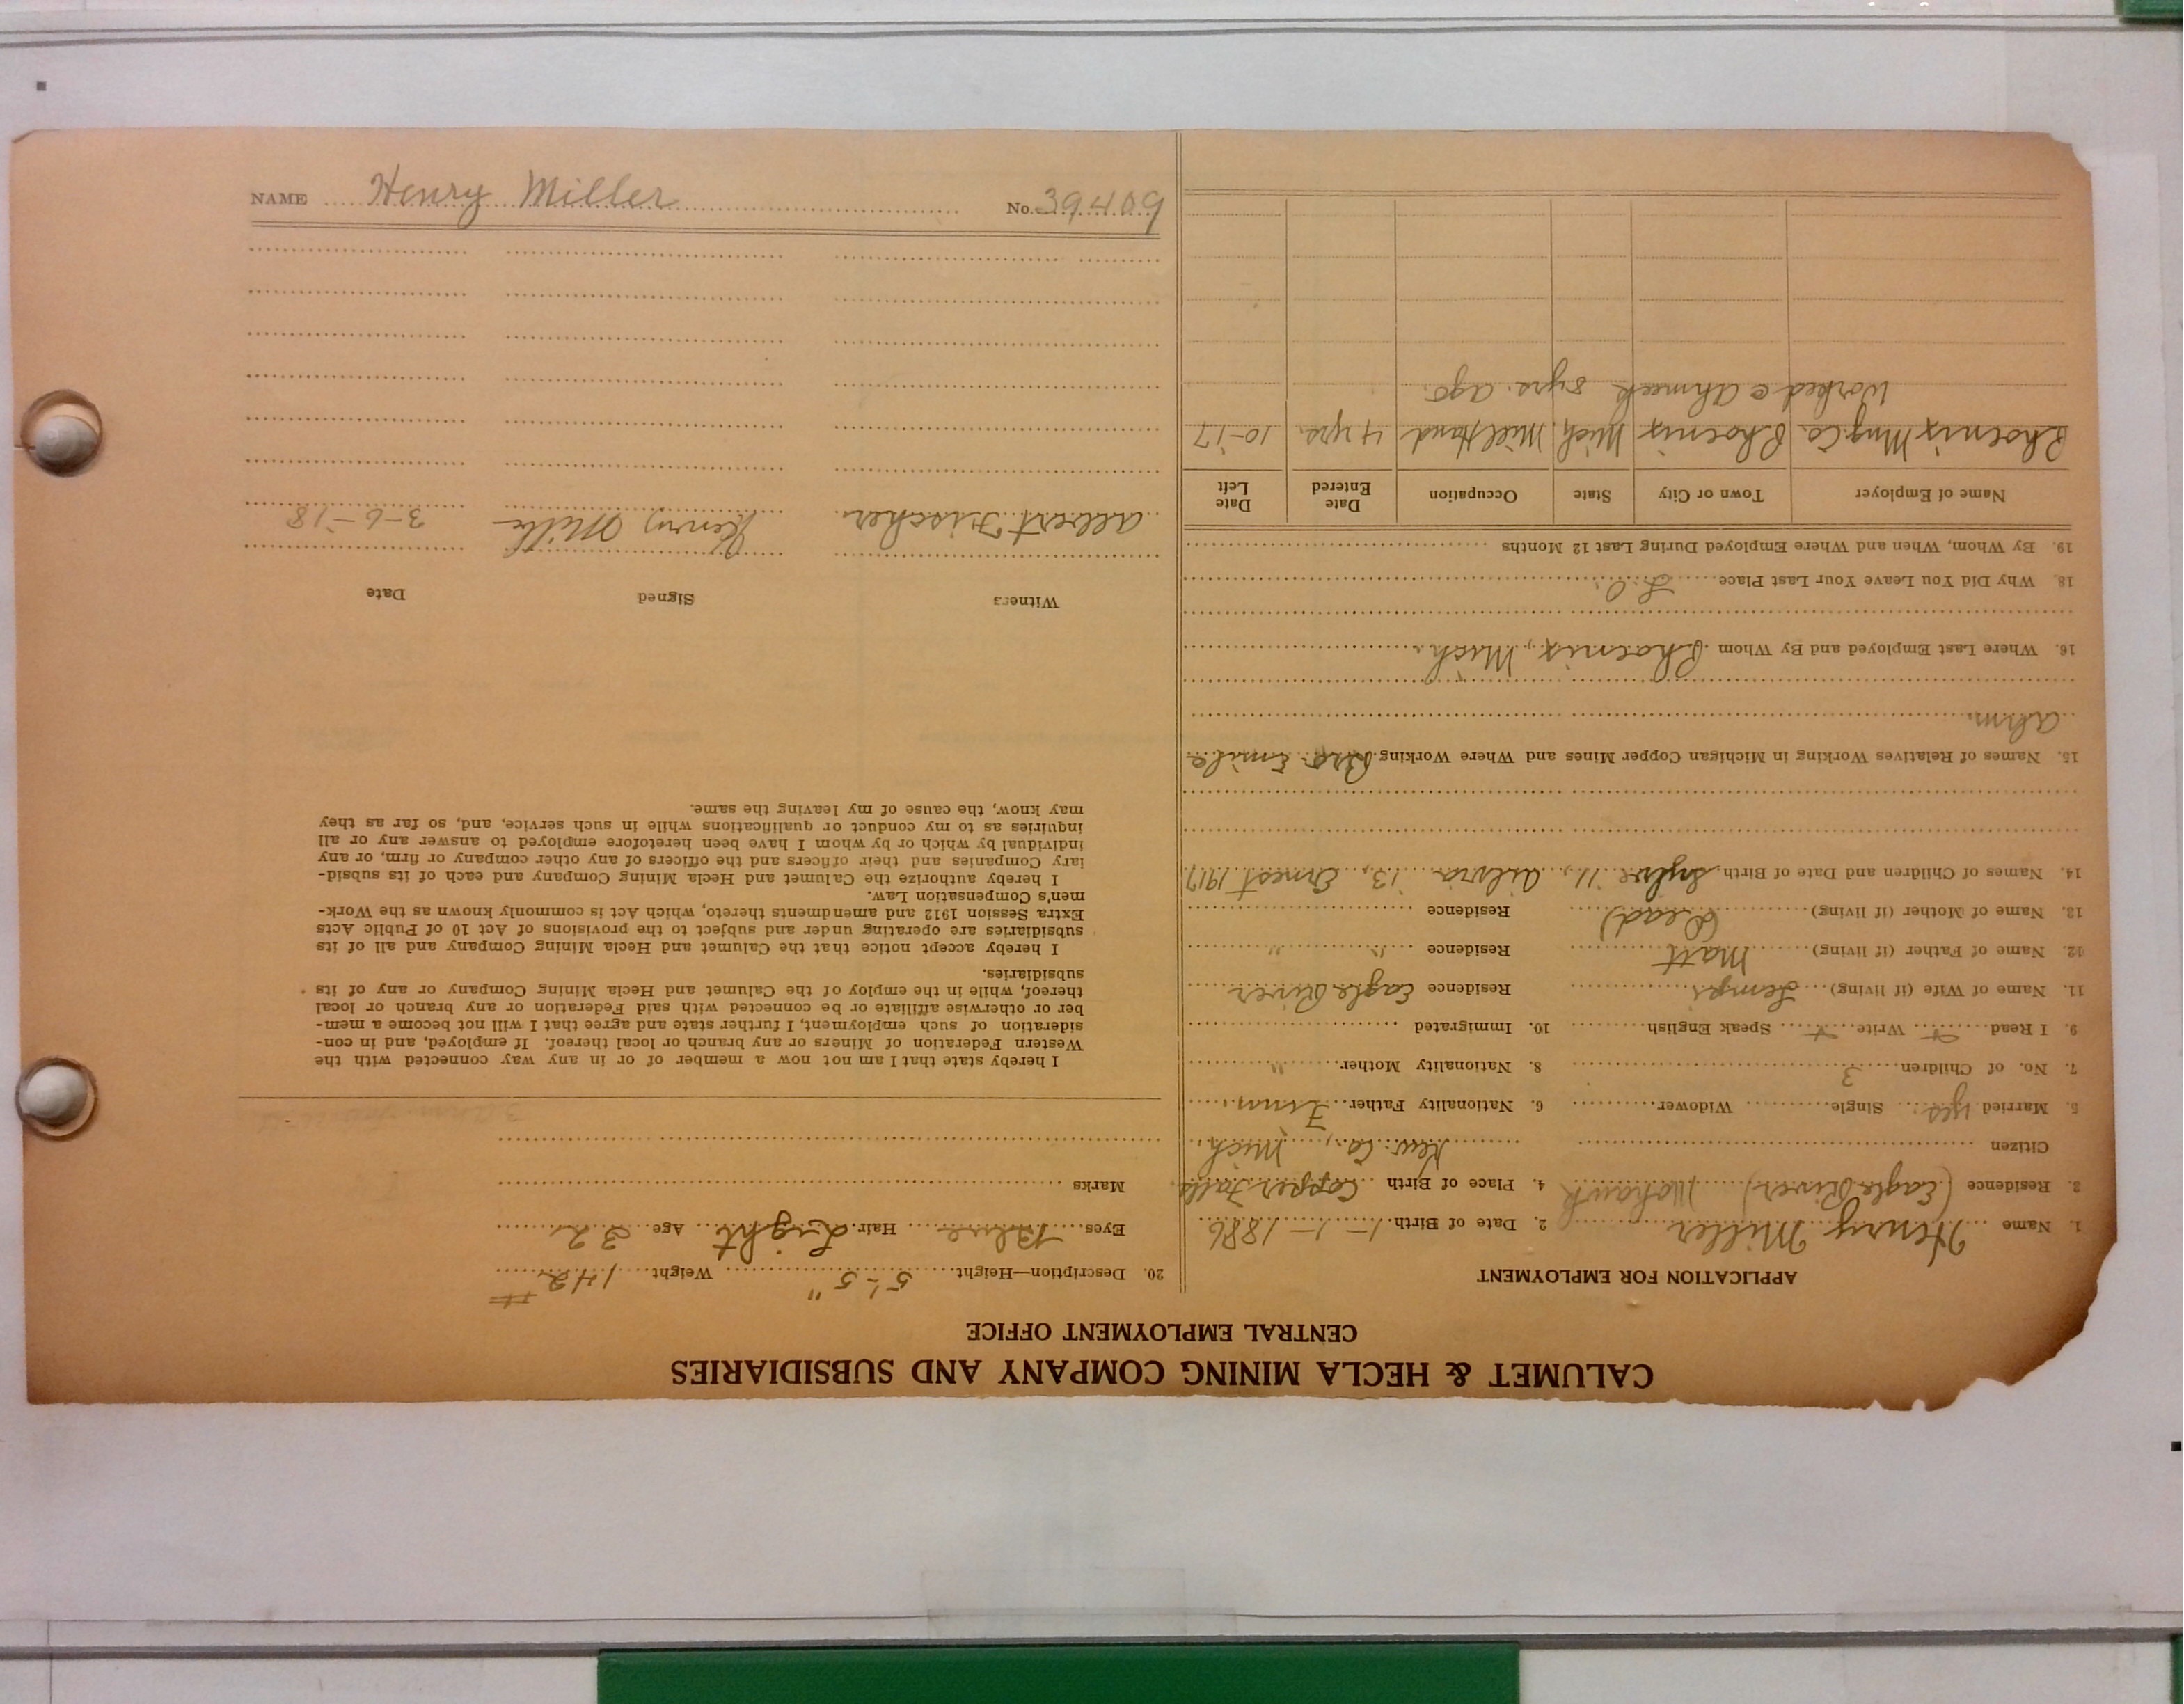 CALUMET & HECLA MINING COMPANY AND SUBSIDIARIES
CENTRAL EMPLOYMENT OFFICE
APPLICATION FOR EMPLOYMENT
1. Name Henry Miller 2. Date of Birth 1-1-1886
3. Residence (Eagle River) Mohawk 4. Place of Birth Copper Falls
Citizen Kew. Co., Mich.
5. Married yes Single Widower 6. Nationality Father Finn.
7. No. of Children 3 8. Nationality Mother "
9. I Read + Write + Speak English 10. Immigrated
11. Name of Wife (if living) Residence Eagle River
12. Name of Father (if living) Matt Residence " "
13. Name of Mother (if living) (Dead) Residence
14. Names of Children and Date of Birth '11, '13, Ernest 1917
15. Names of Relatives Working in Michigan Copper Mines and Where Working Bro. Emile
Ahm.
16. Where Last Employed and By Whom Phoenix, Mich.
18. Why Did You Leave Your Last Place L.O.
19. By Whom, When and Where Employed During Last 12 Months
Name of Employer Town or City State Occupation Date Entered Date Left
Phoenix Mng. Co. Phoenix Mich. Mill Hand 4 yrs. 10-17
Worked @ Ahmeek 8 yrs. ago.
20. Description—Height 5'-5" Weight 142 #
Eyes Blue Hair Light Age 32
Marks
I hereby state that I am not now a member of or in any way connected with the
Western Federation of Miners or any branch or local thereof. If employed, and in con-
sideration of such employment, I further state and agree that I will not become a mem-
ber or otherwise affiliate or be connected with said Federation or any branch or local
thereof, while in the employ of the Calumet and Hecla Mining Company or any of its
subsidiaries.
I hereby accept notice that the Calumet and Hecla Mining Company and all of its
subsidiaries are operating under and subject to the provisions of Act 10 of Public Acts
Extra Session 1912 and amendments thereto, which Act is commonly known as the Work-
men's Compensation Law.
I hereby authorize the Calumet and Hecla Mining Company and each of its subsid-
iary Companies and their officers and the officers of any other company or firm, or any
individual by which or by whom I have been heretofore employed to answer any or all
inquiries as to my conduct or qualifications while in such service, and, so far as they
may know, the cause of my leaving the same.
Witness Signed Date
Albert Fischer Henry Miller 3-6-'18
NAME Henry Miller No. 39409